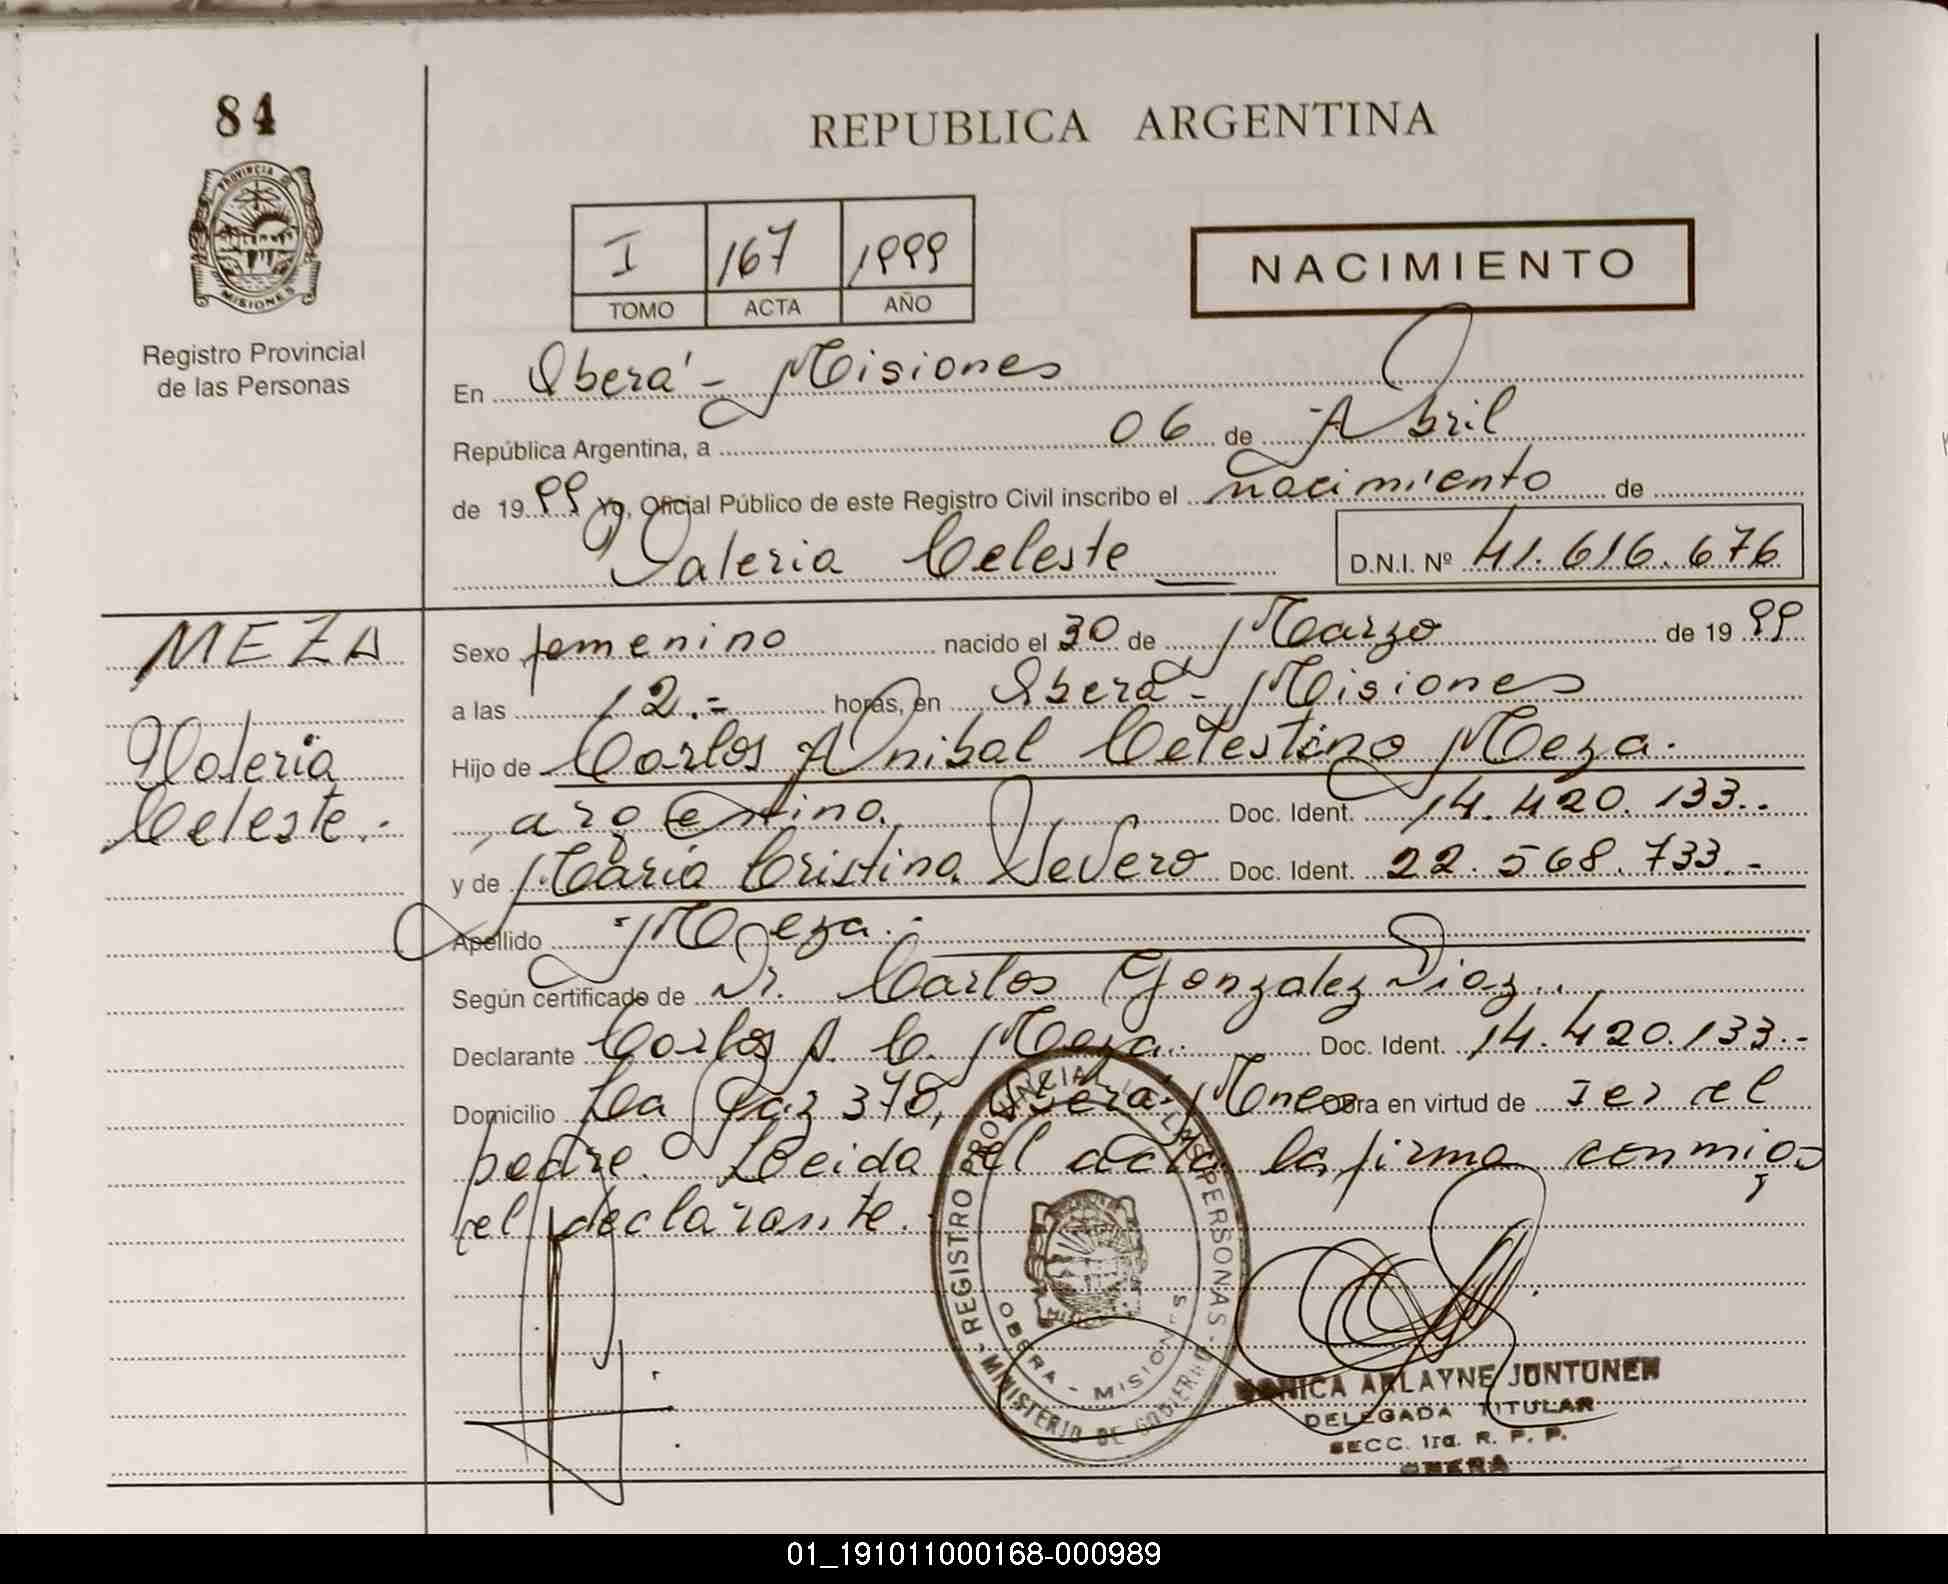 84
PROVINCIA DE
MISIONES
Registro Provincial
de las Personas
REPUBLICA ARGENTINA
I 167 1999
TOMO ACTA AÑO
NACIMIENTO
En Oberá - Misiones
República Argentina, a 06 de Abril
de 1999 Yo, Oficial Público de este Registro Civil inscribo el nacimiento de
Valeria Celeste D.N.I. Nº 41.616.676
MEZA
Valeria
Celeste.-
Sexo femenino nacido el 30 de Marzo de 1999
a las 12.- horas, en Oberá - Misiones
Hijo de Carlos Anibal Celestino Meza.
argentino. Doc. Ident. 14.420.133.-
y de María Cristina Severo Doc. Ident. 22.568.733.-
Apellido Meza.
Según certificado de Dr. Carlos Gonzalez Diaz.
Declarante Carlos A. C. Meza. Doc. Ident. 14.420.133.-
Domicilio La Paz 378, Oberá, Mnes Obra en virtud de ser el
padre. Leida el acta la firma conmigo
el declarante.
REGISTRO PROVINCIAL LAS PERSONAS
OBERA - MISIONES
MINISTERIO DE GOBIERNO
MONICA ARLAYNE JONTUNEN
DELEGADA TITULAR
SECC. 1ra. R. P. P.
OBERA
01_191011000168-000989